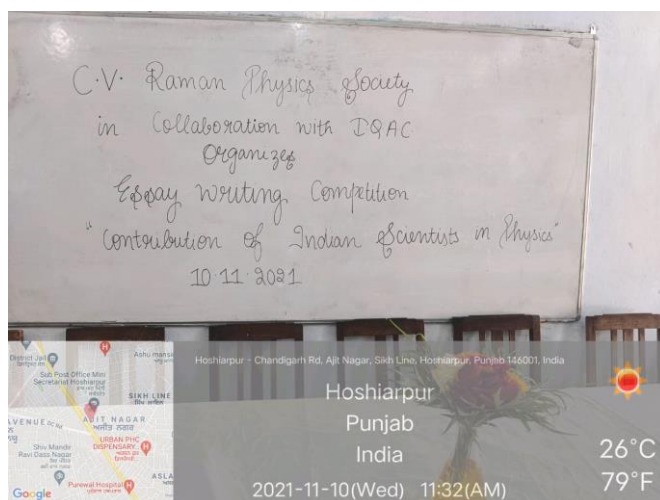 C.V. Raman Physics Society
in Collaboration with IQAC
Organizes
Essay Writing Competition
"Contribution of Indian Scientists in Physics"
10.11.2021
Hoshiarpur - Chandigarh Rd, Ajit Nagar, Sikh Line, Hoshiarpur, Punjab 146001, India
Hoshiarpur
Punjab
India
2021-11-10(Wed) 11:32(AM)
26°C
79°F
District Jail
Ashu
Sub Post Office Mini
Secretariat Hoshiarpur
SIKH LINE
AVENUE
AJIT NAGAR
ਅਜੀਤ ਨਗਰ
URBAN PHC
DISPENSARY
Shiv Mandir
Ravi Dass Nagar
ASLA
Purewal Hospital
Google